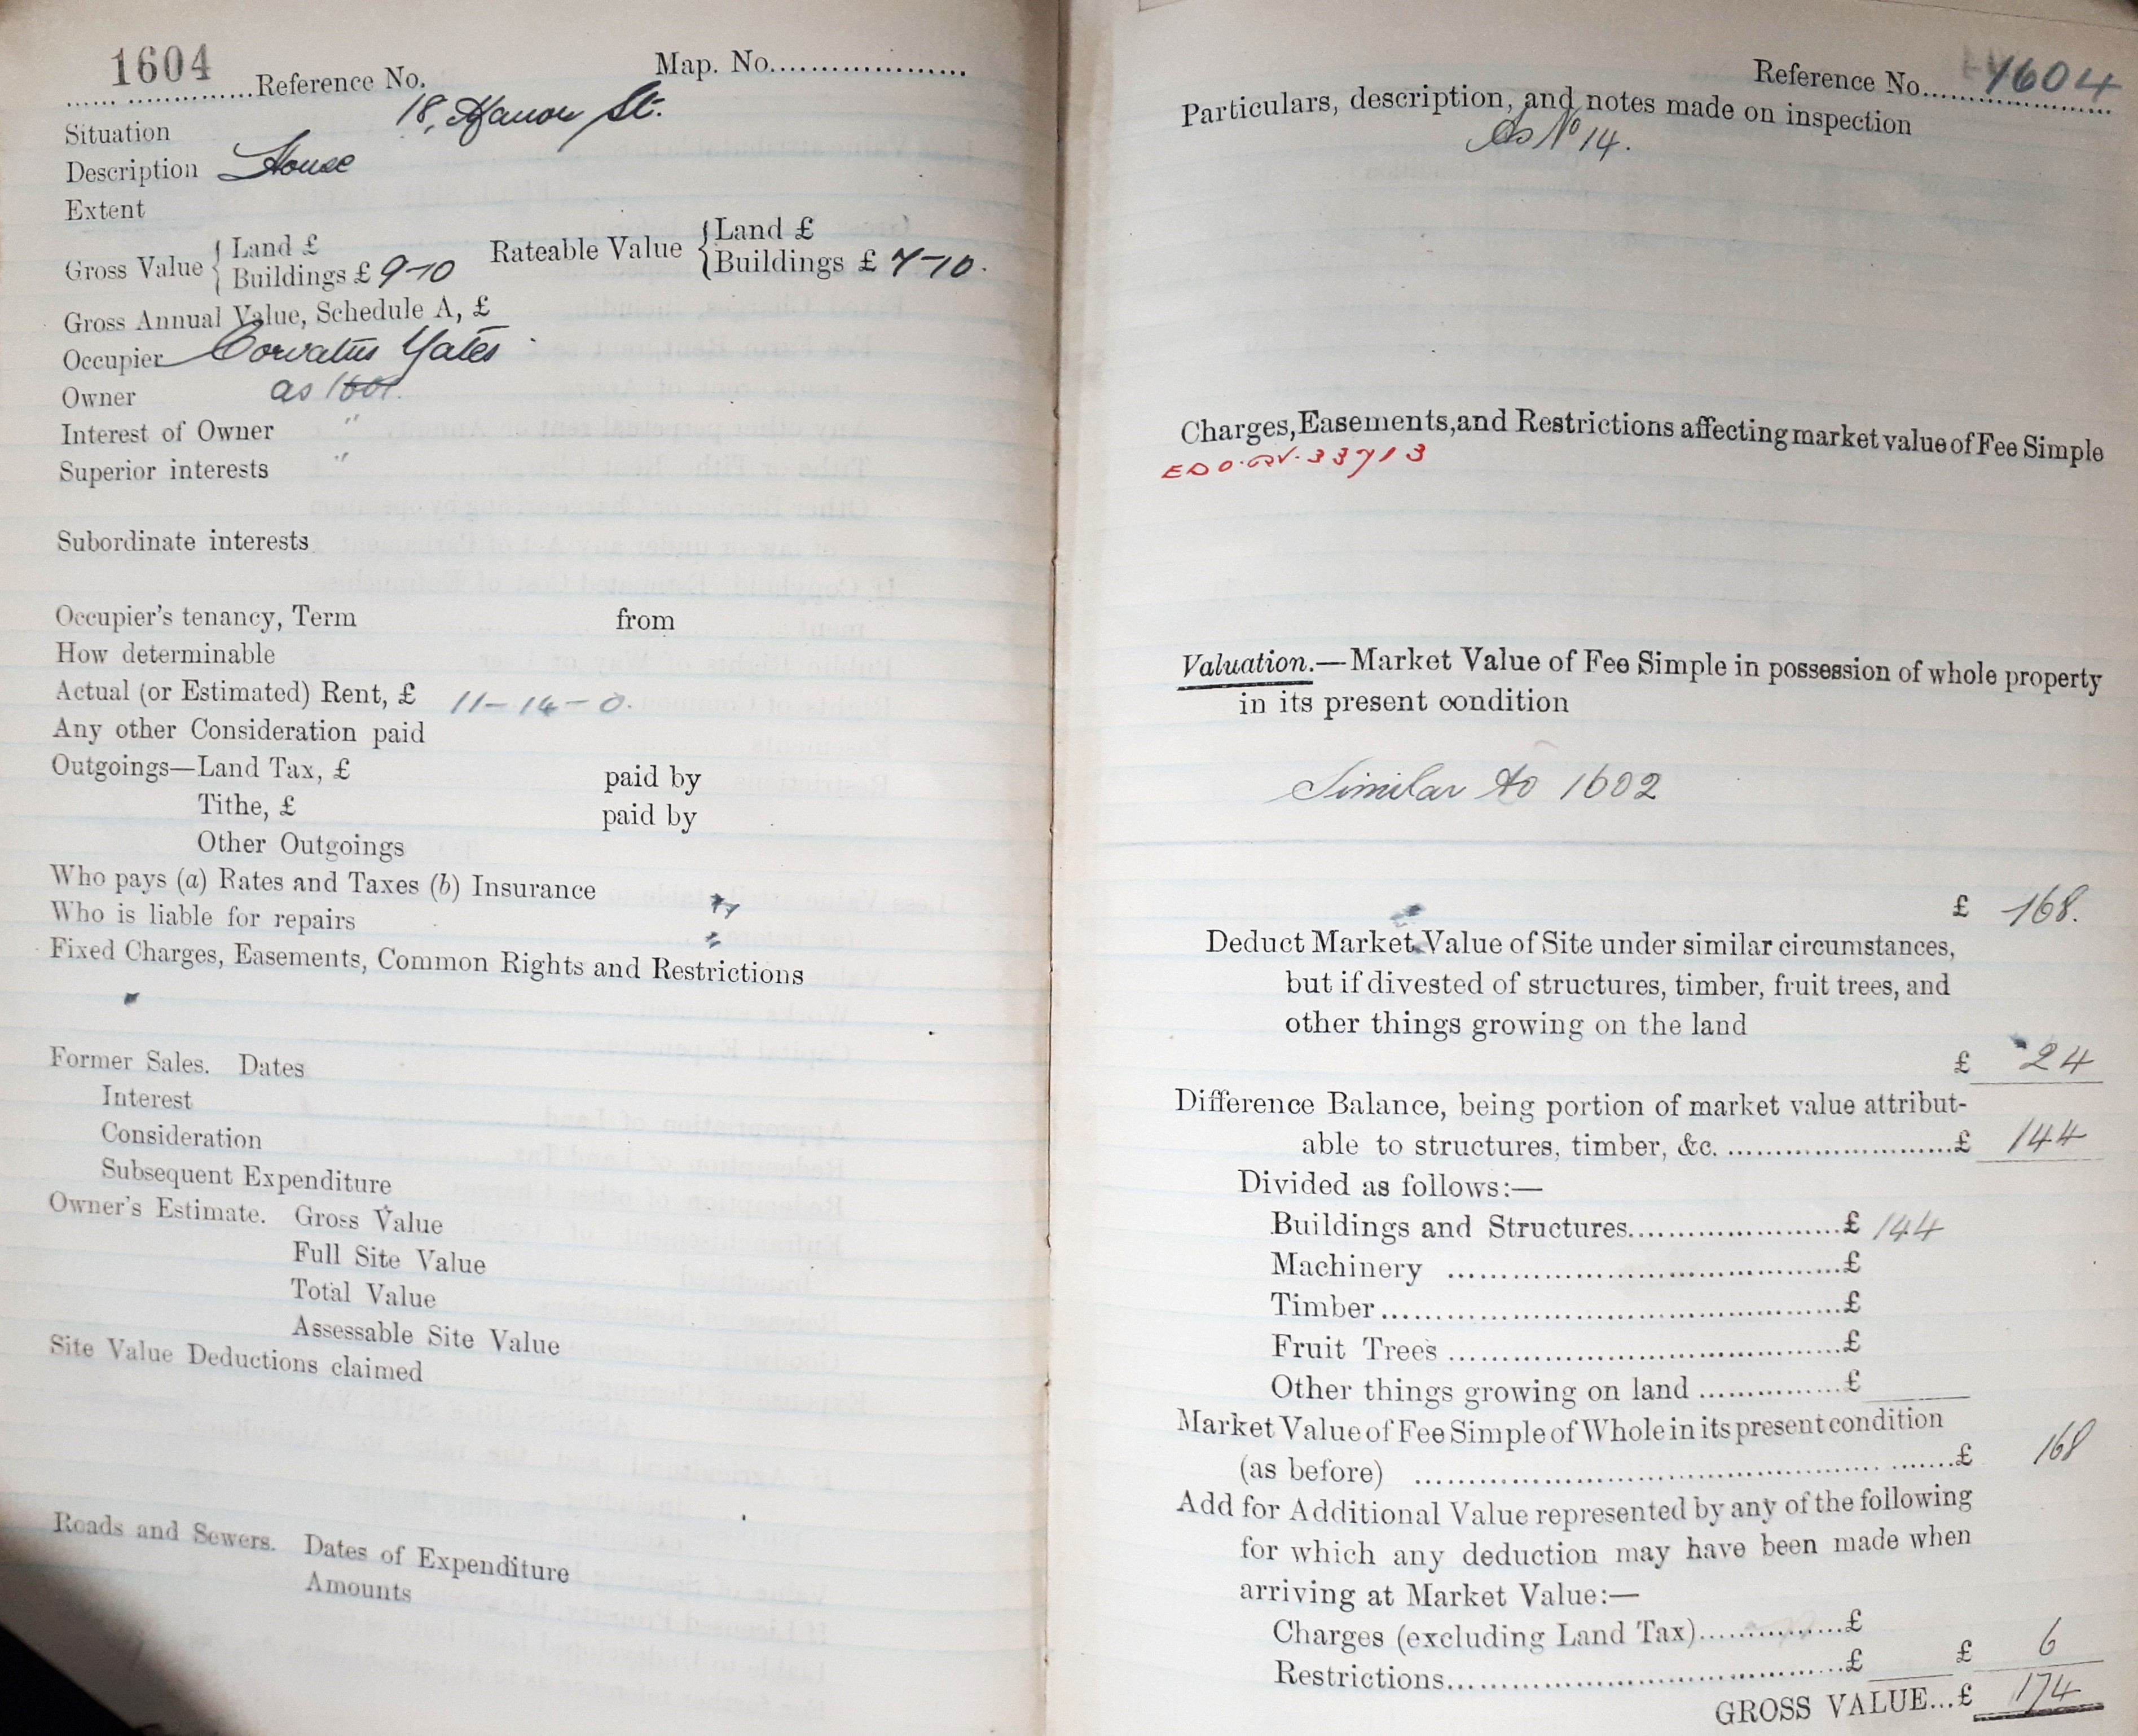 1604
Reference No. Map. No.
Situation 18, Manor St.
Description House
Extent
Gross Value { Land £
Buildings £ 9-10
Rateable Value { Land £
Buildings £ 7-10.
Gross Annual Value, Schedule A, £
Occupier Corvatus Yates
Owner as 1601.
Interest of Owner "
Superior interests "
Subordinate interests
Occupier's tenancy, Term from
How determinable
Actual (or Estimated) Rent, £ 11-14-0.
Any other Consideration paid
Outgoings—Land Tax, £ paid by
Tithe, £ paid by
Other Outgoings
Who pays (a) Rates and Taxes (b) Insurance
Who is liable for repairs
Fixed Charges, Easements, Common Rights and Restrictions
Former Sales. Dates
Interest
Consideration
Subsequent Expenditure
Owner's Estimate. Gross Value
Full Site Value
Total Value
Assessable Site Value
Site Value Deductions claimed
Roads and Sewers. Dates of Expenditure
Amounts
Reference No. 1604
Particulars, description, and notes made on inspection
As No 14.
Charges, Easements, and Restrictions affecting market value of Fee Simple
33713
Valuation.—Market Value of Fee Simple in possession of whole property
in its present condition
Similar to 1602
£ 168.
Deduct Market Value of Site under similar circumstances,
but if divested of structures, timber, fruit trees, and
other things growing on the land
£ 24
Difference Balance, being portion of market value attribut-
able to structures, timber, &c. £ 144
Divided as follows:—
Buildings and Structures £ 144
Machinery £
Timber £
Fruit Trees £
Other things growing on land £
Market Value of Fee Simple of Whole in its present condition
(as before) £ 168
Add for Additional Value represented by any of the following
for which any deduction may have been made when
arriving at Market Value:—
Charges (excluding Land Tax) £
Restrictions £ £ 6
GROSS VALUE...£ 174